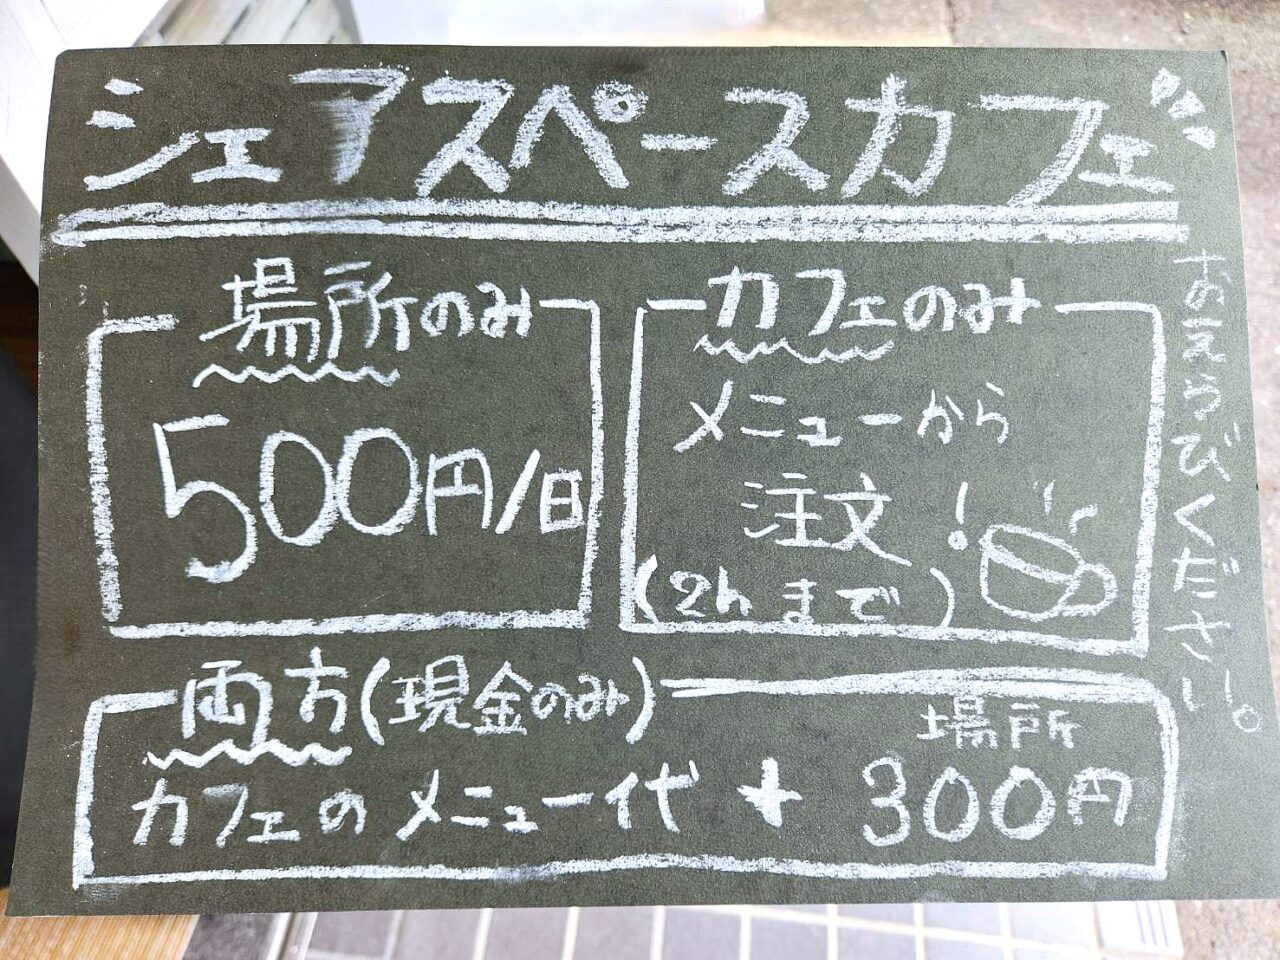 シェアスペースカフェ
場所のみ
500円/日
カフェのみ
メニューから
注文!
(2hまで)
おえらびください。
両方(現金のみ)
カフェのメニュー代 + 場所
300円